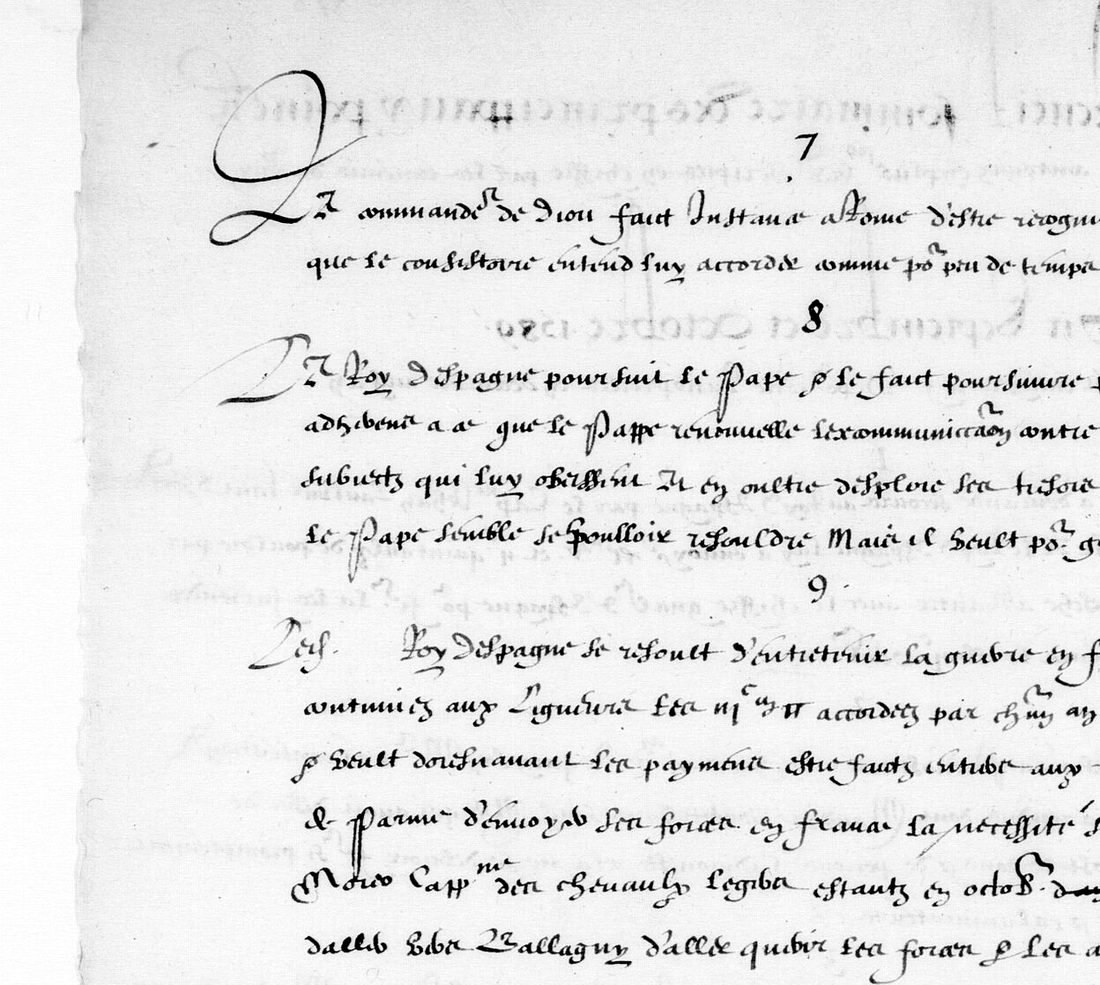 7
Le command.r de Diou faict Instance a Rome d'estre recogn
que le consistoire entend luy accorder comme po.r peu de temps
8
Le Roy despagne poursuit le Pape & le faict poursuivre
adherens a ce que le Pappe renouvelle lexcommunica.on contre
subiectz qui luy obeissent Et en oultre desploie ses tresors
Le Pape semble se voulloir resouldre Mais il veult po.r
9
Led. Roy despagne se resoult d'entretenir la guerre en
continuer aux Ligueurs les accordez par ch.un an
& veult doresnavant les paymens estre faictz entiers aux
de Parme d'envoyer ses forces en france la necessite
Moreo Capp.ne des chevaulx legers estantz en octob.
daller vers Ballagny d'aller querir les forces & les